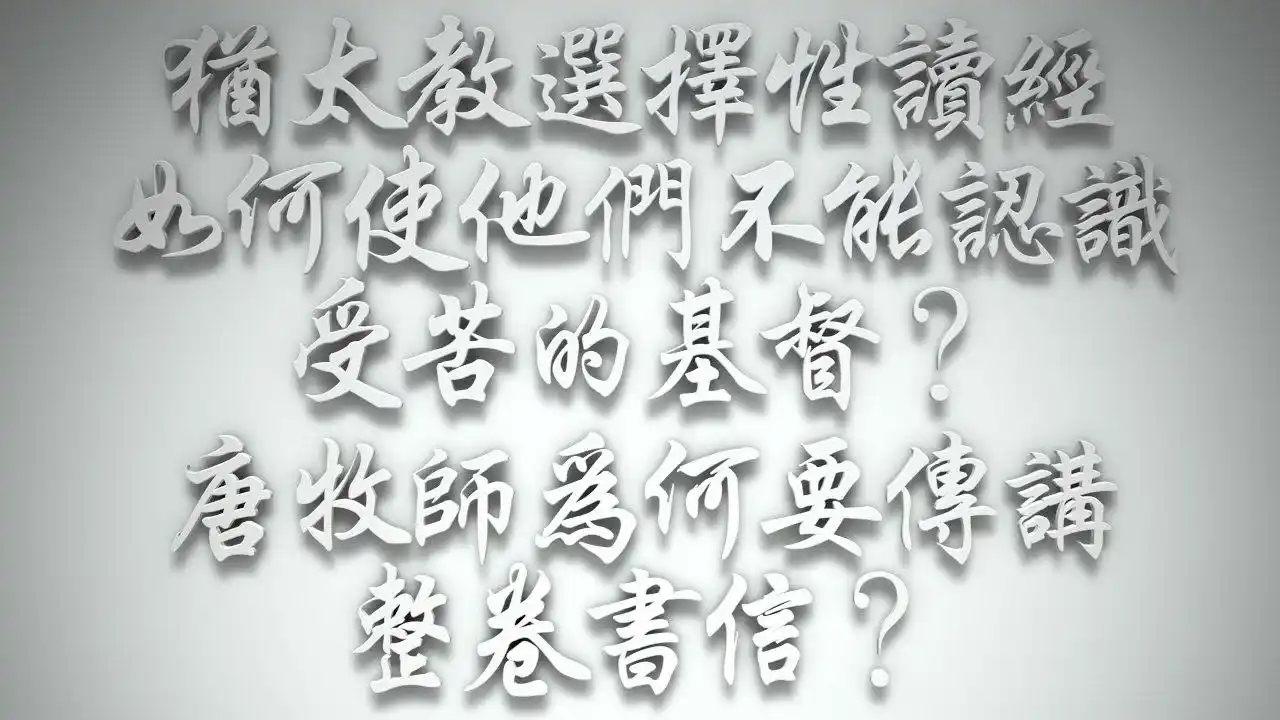 猶太教選擇性讀經
如何使他們不能認識
受苦的基督？
唐牧師為何要傳講
整卷書信？